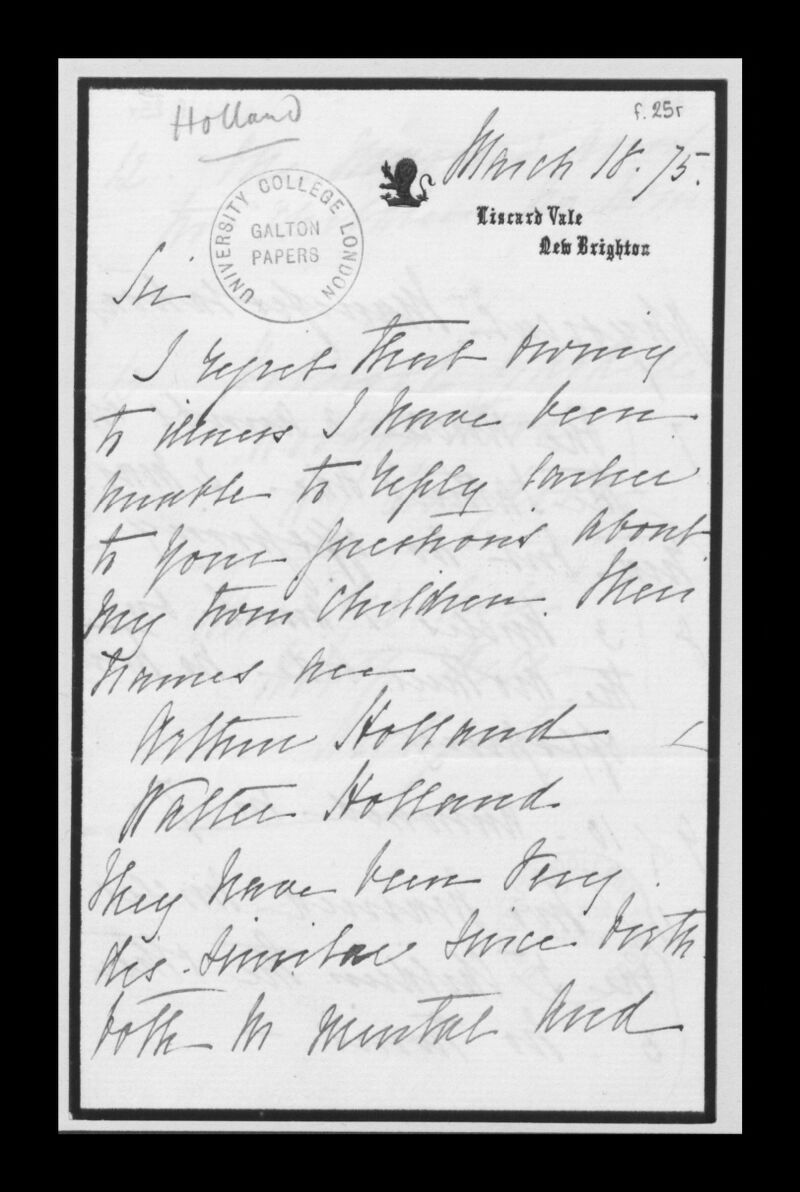 Holland
f. 25r
March 18. 75.
UNIVERSITY COLLEGE LONDON
GALTON
PAPERS
Liscard Vale
New Brighton
Sir
I regret that owing
to illness I have been
unable to reply earlier
to your questions about
my twin children. Their
names are
Arthur Holland
Walter Holland
They have been very
dis-similar since birth
both in mental and